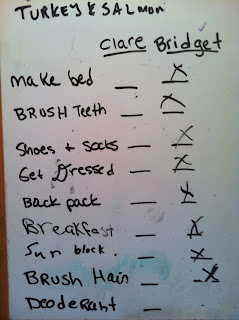 TURKEY & SALMON
Clare Bridget
make bed _ X
BRUSH TeeTH _ X
Shoes + Socks _ X
Get Dressed _ X
Back pack _ X
Breakfast _ X
Sun block _ X
BRUSH Hair _ X
Deoderant _